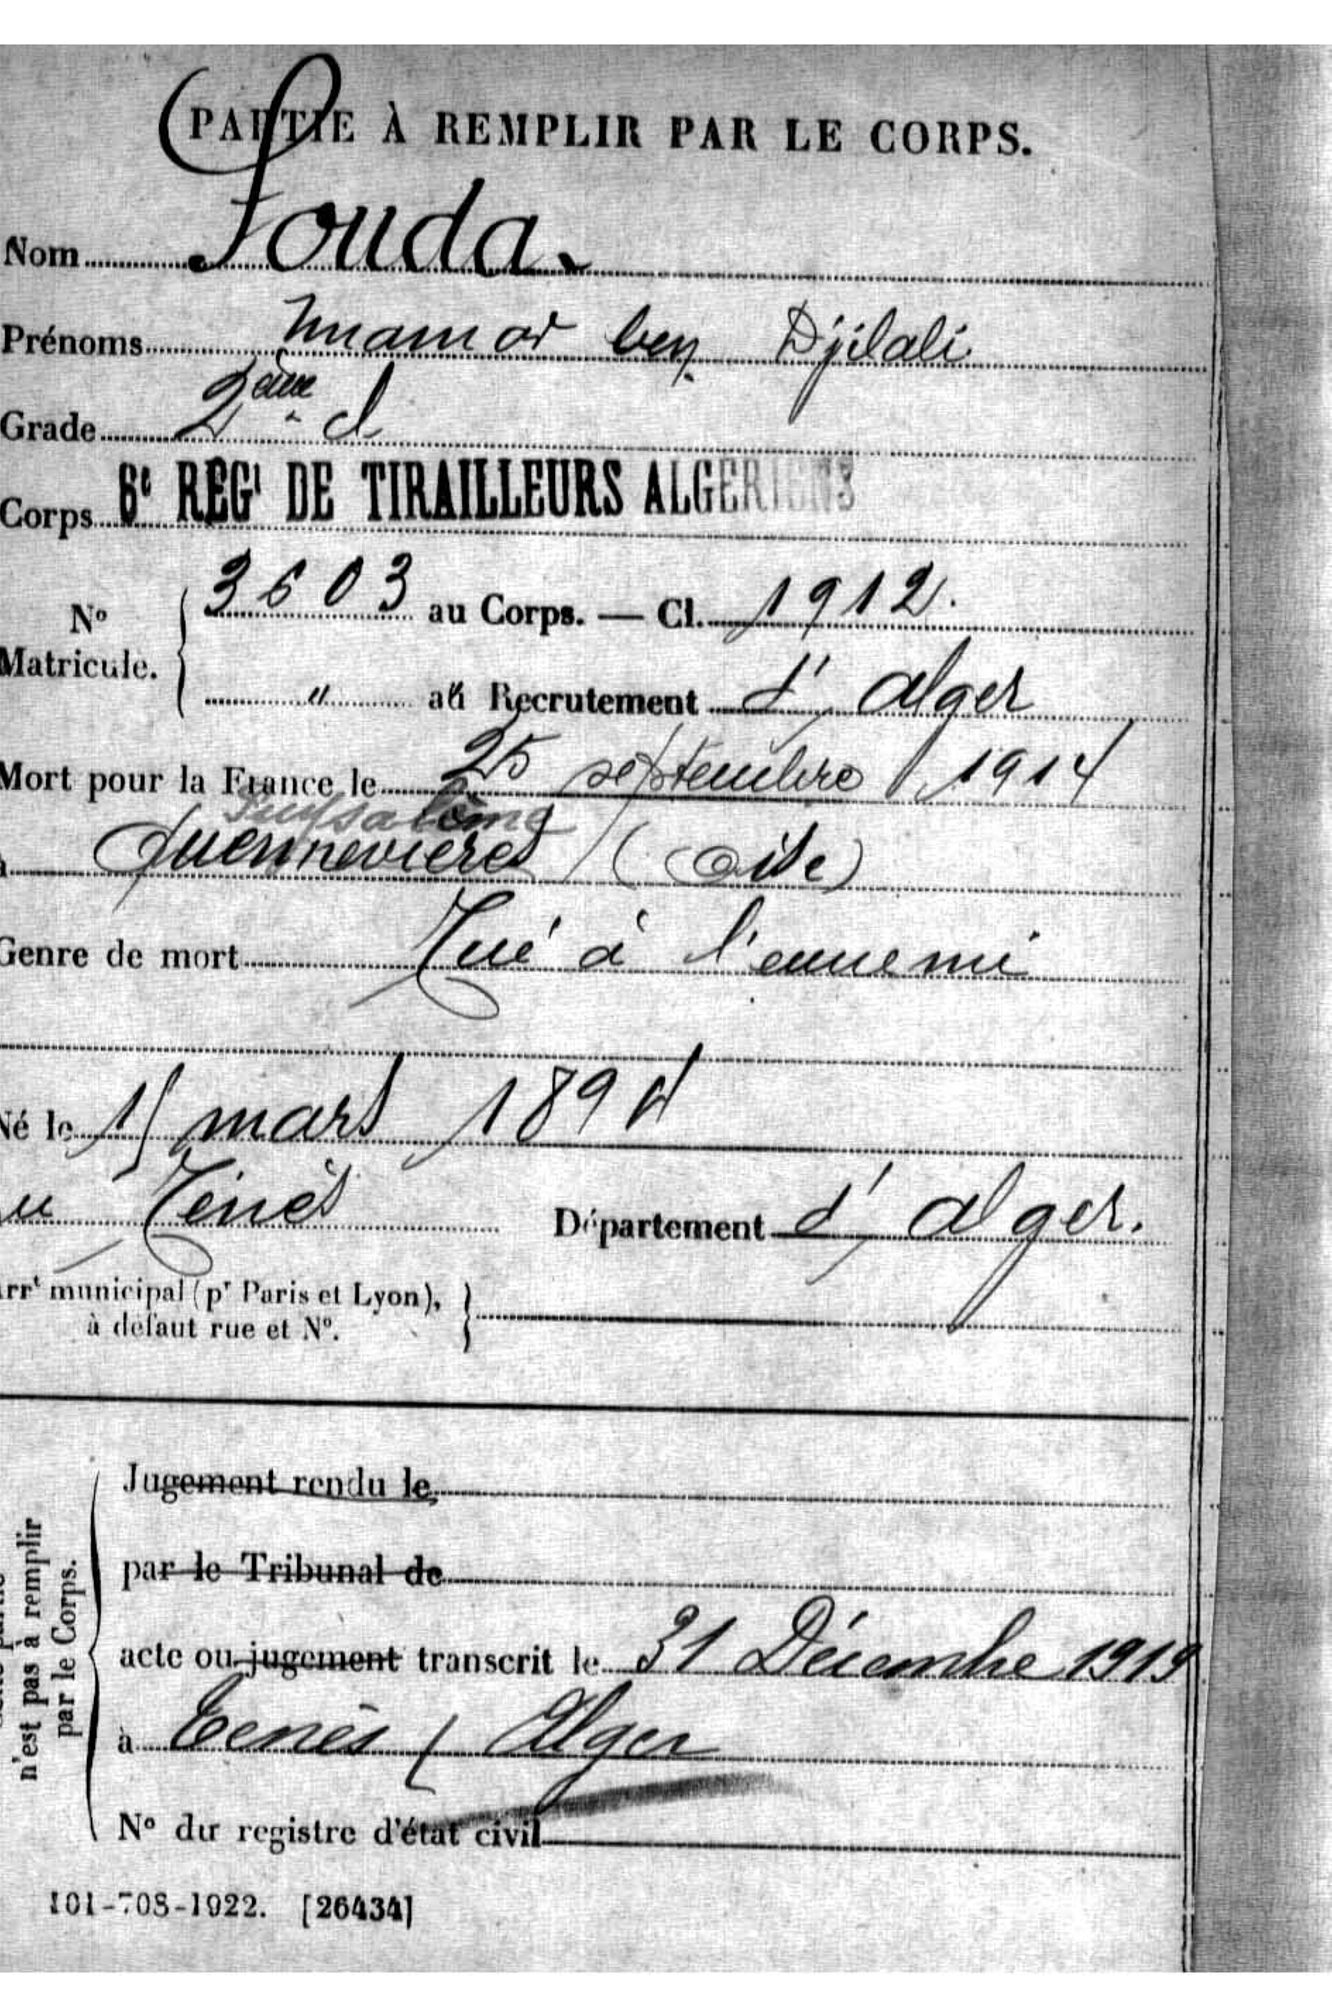 PARTIE À REMPLIR PAR LE CORPS.
Nom Fouda.
Prénoms Mamar ben Djilali
Grade 2ème cl
Corps 6e REGt DE TIRAILLEURS ALGERIENS
No Matricule. 3603 au Corps. — Cl. 1912.
" au Recrutement d'Alger
Mort pour la France le 25 septembre 1914
Puysaleine
Quennevieres (Oise)
Genre de mort Tué à l'ennemi
Né le 15 mars 1894
Ténès Département d'Alger.
arrt municipal (pr Paris et Lyon),
à défaut rue et No.
Jugement rendu le
par le Tribunal de
acte ou jugement transcrit le 31 Décembre 1919
à Tenès (Alger
No du registre d'état civil
n'est pas à remplir
par le Corps.
101-708-1922. [26434]